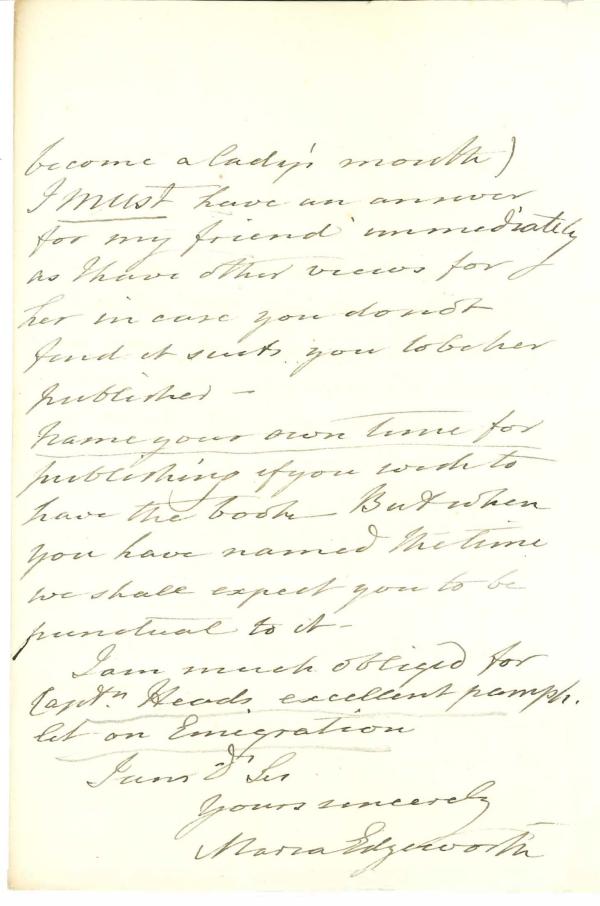 become a lady's mouth)
I must have an answer
for my friend immediately
as I have other views for
her in case you do not
find it suits you to be her
publisher –
name your own time for
publishing if you wish to
have the book – But when
you have named the time
we shall expect you to be
punctual to it –
I am much obliged for
Captn. Heads excellent pamph.
let on Emigration
I am Dr Sir
Yours sincerely
Maria Edgeworth